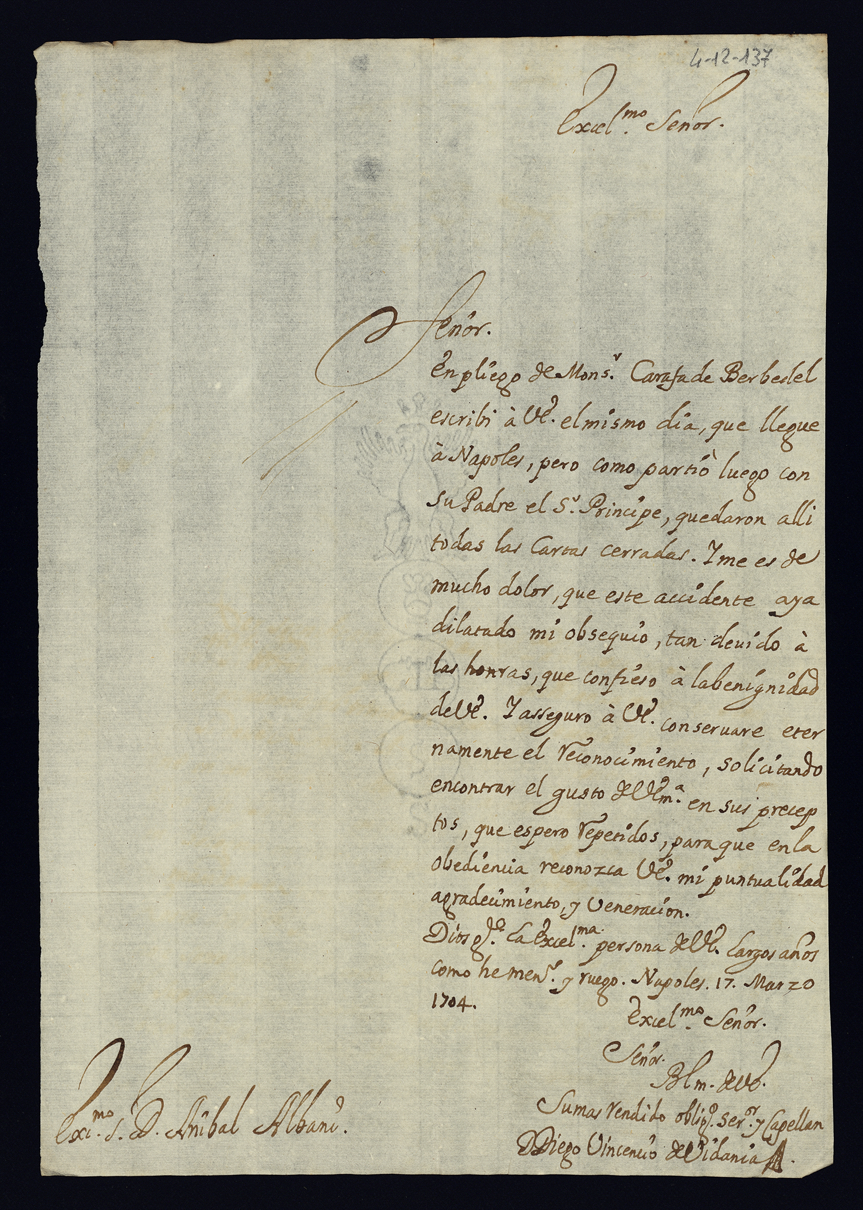 4-12-137
Excel.mo Señor.
Señor.
En pliego de Mons.r Carafa de Berbedel
escribi à VE. el mismo dia, que llegue
à Napoles, pero como partiò luego con
su Padre el S.r Principe, quedaron alli
todas las Cartas cerradas. I me es de
mucho dolor, que este accidente aya
dilatado mi obsequio, tan devido à
las honras, que confieso à la benignidad
de VE. I asseguro à VE. conservare eter
namente el reconocimiento, solicitando
encontrar el gusto de VEm.a en sus precep
tos, que espero repetidos, para que en la
obediencia reconozca VE. mi puntualidad
agradecimiento, y veneracion.
Dios g.de la Excel.ma persona de VE. largos años
como he men.r y ruego. Napoles. 17. Marzo
1704.
Excel.mo Señor.
Señor.
Blm. de VE.
Su mas rendido oblig.o ser.or y Capellan
D Diego Vincencio de Vidania
Exc.mo S. D. Anibal Albani.